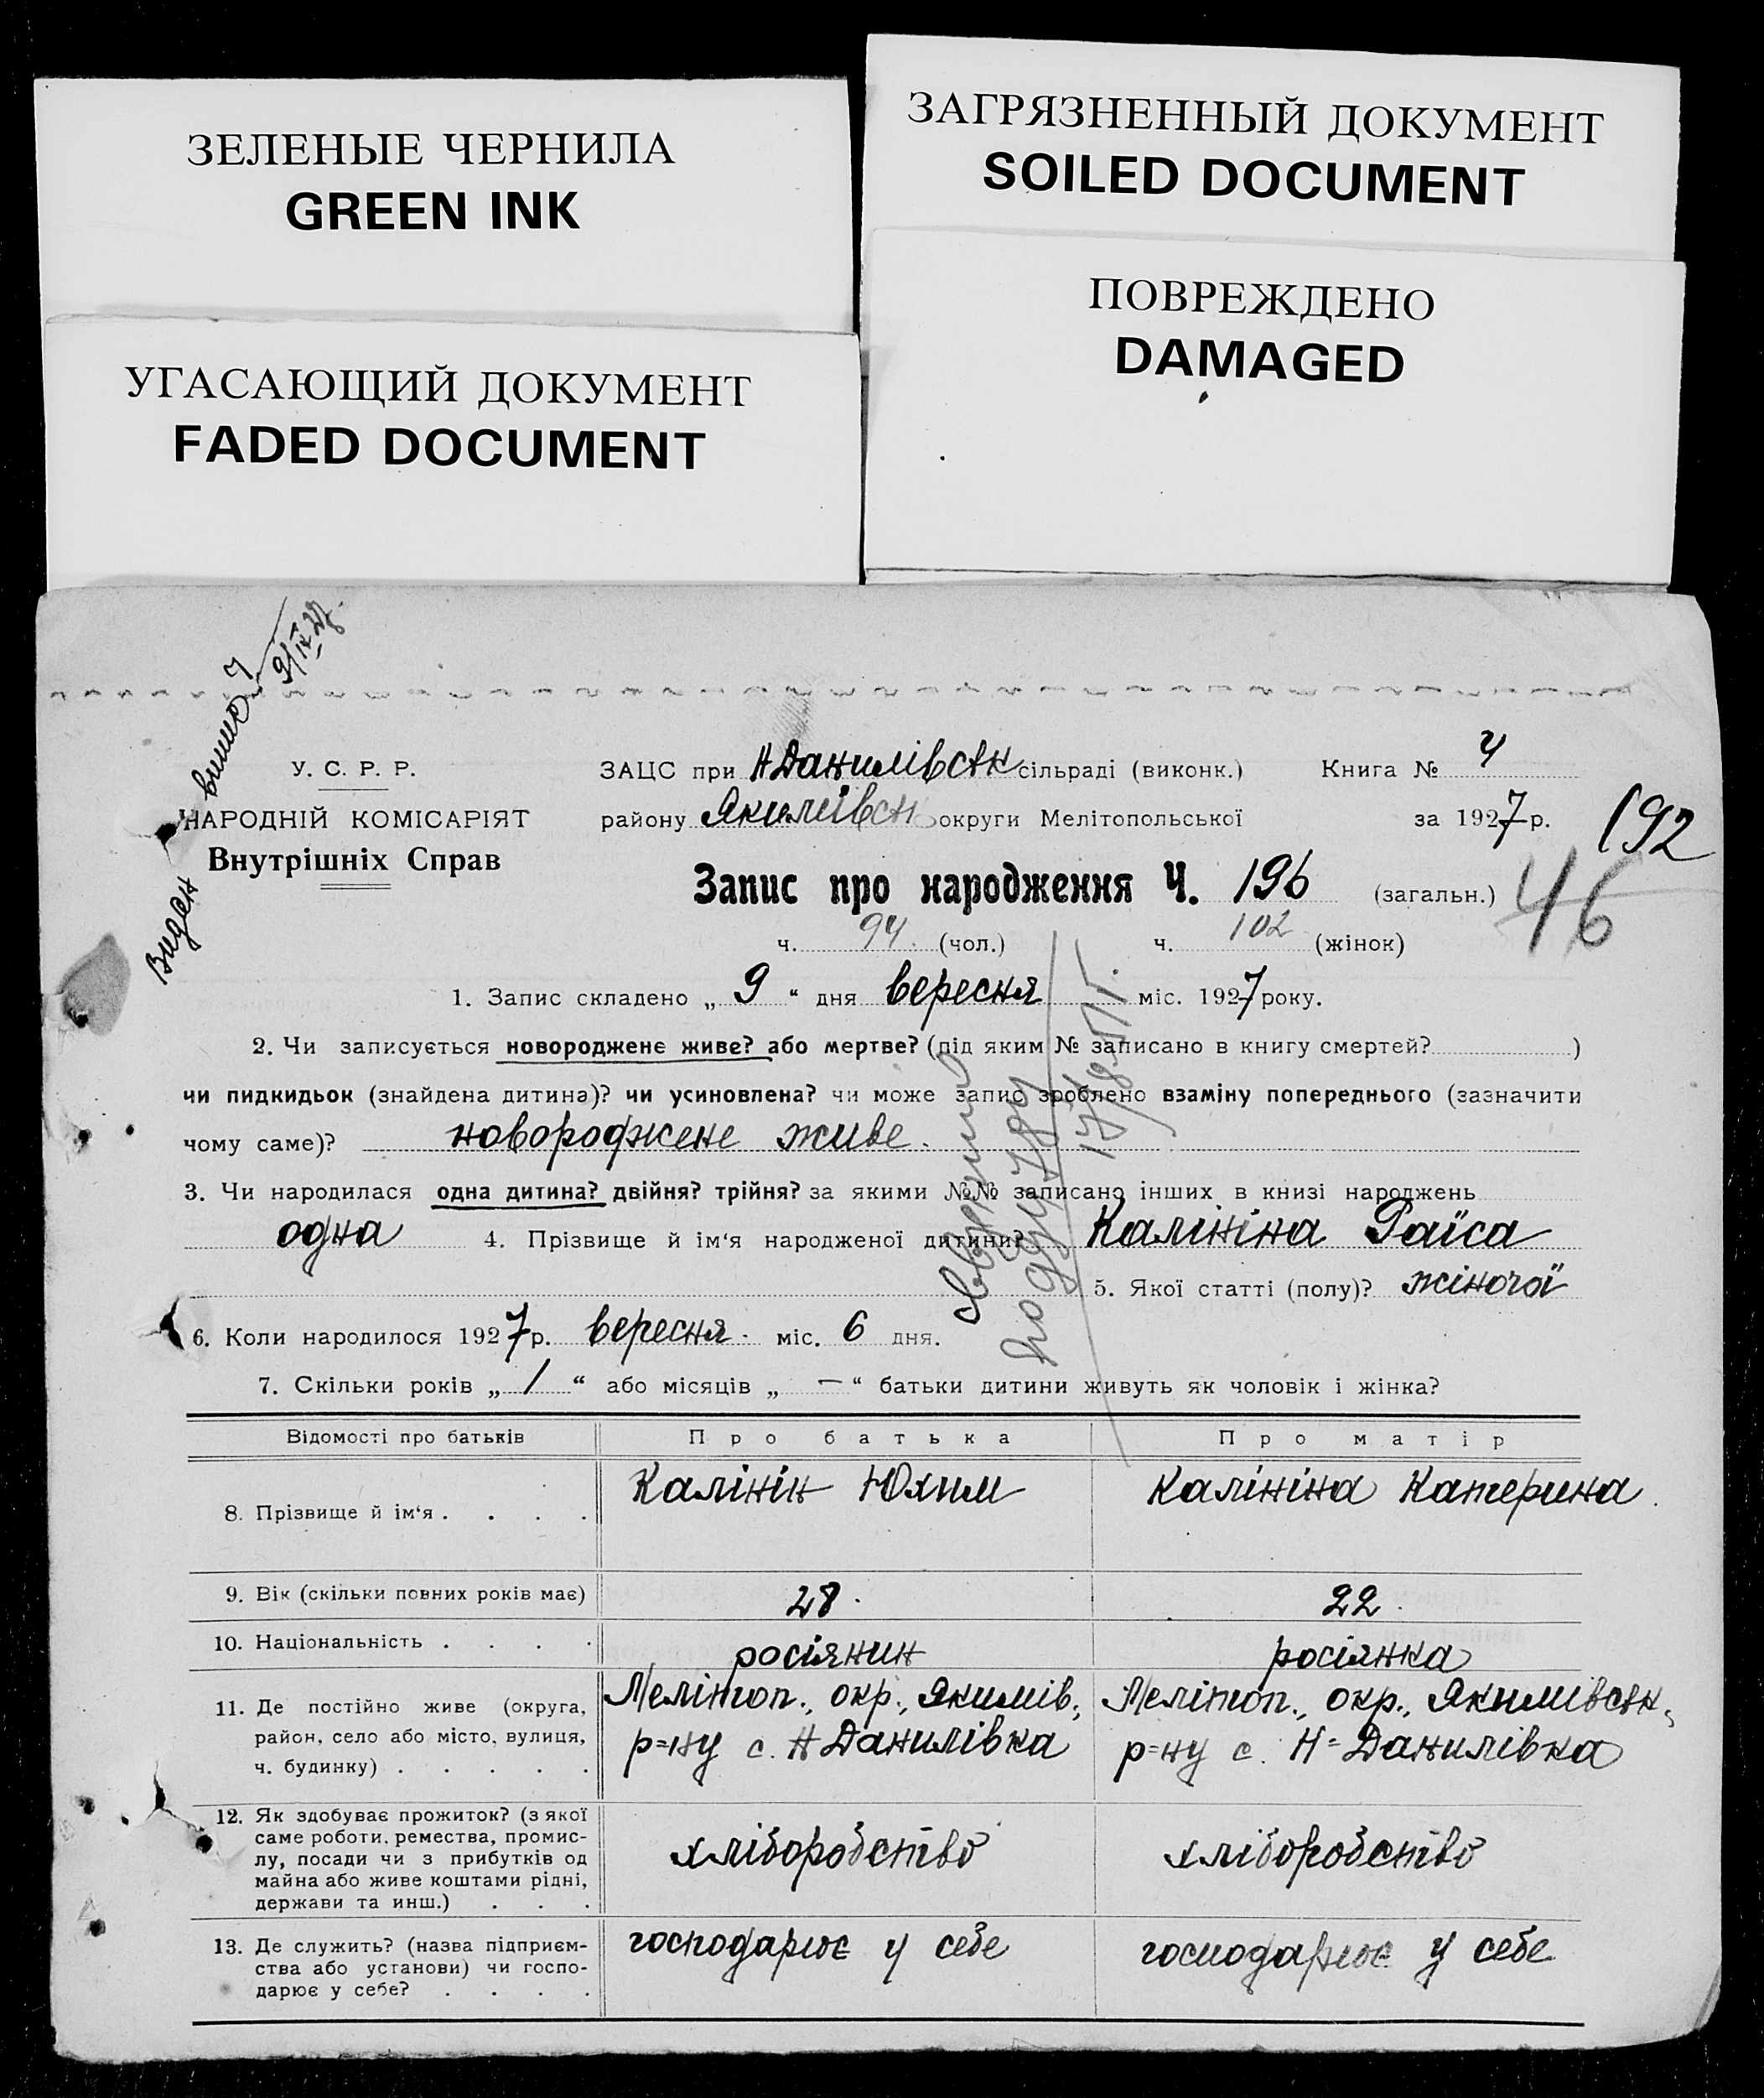 ЗЕЛЕНЫЕ ЧЕРНИЛА
GREEN INK
ЗАГРЯЗНЕННЫЙ ДОКУМЕНТ
SOILED DOCUMENT
УГАСАЮЩИЙ ДОКУМЕНТ
FADED DOCUMENT
ПОВРЕЖДЕНО
DAMAGED
У. С. Р. Р.
НАРОДНІЙ КОМІСАРІЯТ
Внутрішніх Справ
Виден
ЗАЦС при НДанилівськ сільраді (виконк.) Книга № 4
району Якимівськ округи Мелітопольської за 1927 р.
192
Запис про народження Ч. 196 (загальн.)
46
ч. 94 (чол.) ч. 102 (жінок)
1. Запис складено „ 9 “ дня вересня міс. 1927 року.
2. Чи записується новороджене живе? або мертве? (під яким № записано в книгу смертей? )
чи пидкидьок (знайдена дитина)? чи усиновлена? чи може запис зроблено взаміну попереднього (зазначити
чому саме)? новороджене живе.
3. Чи народилася одна дитина? двійня? трійня? за якими №№ записано інших в книзі народжень
одна 4. Прізвище й ім‘я народженої дитини? Калініна Раїса
5. Якої статті (полу)? жіночої
6. Коли народилося 1927 р. вересня міс. 6 дня.
7. Скільки років „ 1 “ або місяців „ — “ батьки дитини живуть як чоловік і жінка?
Відомості про батьків Про батька Про матір
8. Прізвище й ім‘я . . . . Калінін Юхим Калініна Катерина
9. Вік (скільки повних років має) 28. 22.
10. Національність . . . . росіянин росіянка
11. Де постійно живе (округа,
район, село або місто, вулиця,
ч. будинку) . . . . .
Мелітоп., окр., Якимів.,
р=ну с. НДанилівка
Мелітоп., окр., Якимівськ,
р=ну с. Н=Данилівка
12. Як здобуває прожиток? (з якої
саме роботи, ремества, промис-
лу, посади чи з прибутків од
майна або живе коштами рідні,
держави та инш.) . . .
хліборобство хліборобство
13. Де служить? (назва підприєм-
ства або установи) чи госпо-
дарює у себе? . . . .
господарює у себе господарює у себе